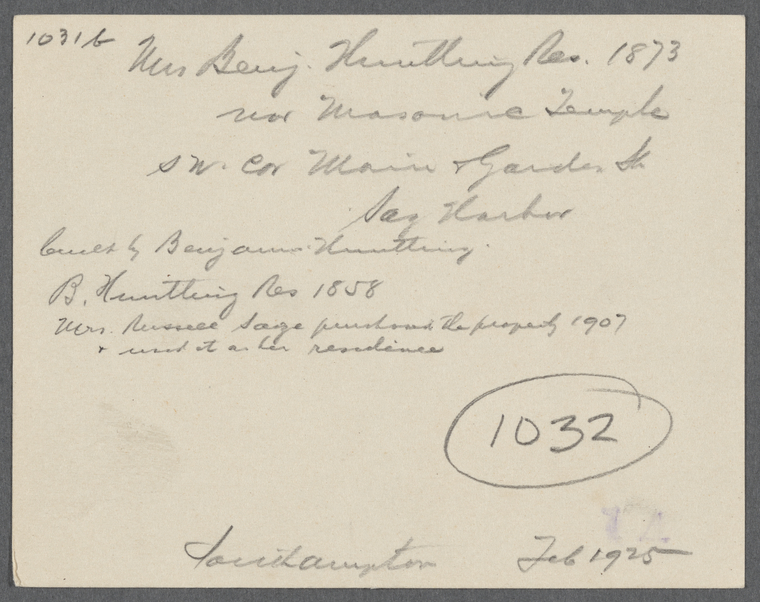 1031b Mrs Benj. Huntting Res. 1873
now Masonic Temple
SW. Cor Main & Garden St
Sag Harbor
built by Benjamin Huntting.
B. Huntting Res 1858
Mrs. Russell Sage purchased the property 1907
& used it as her residence
1032
Southampton Feb 1925